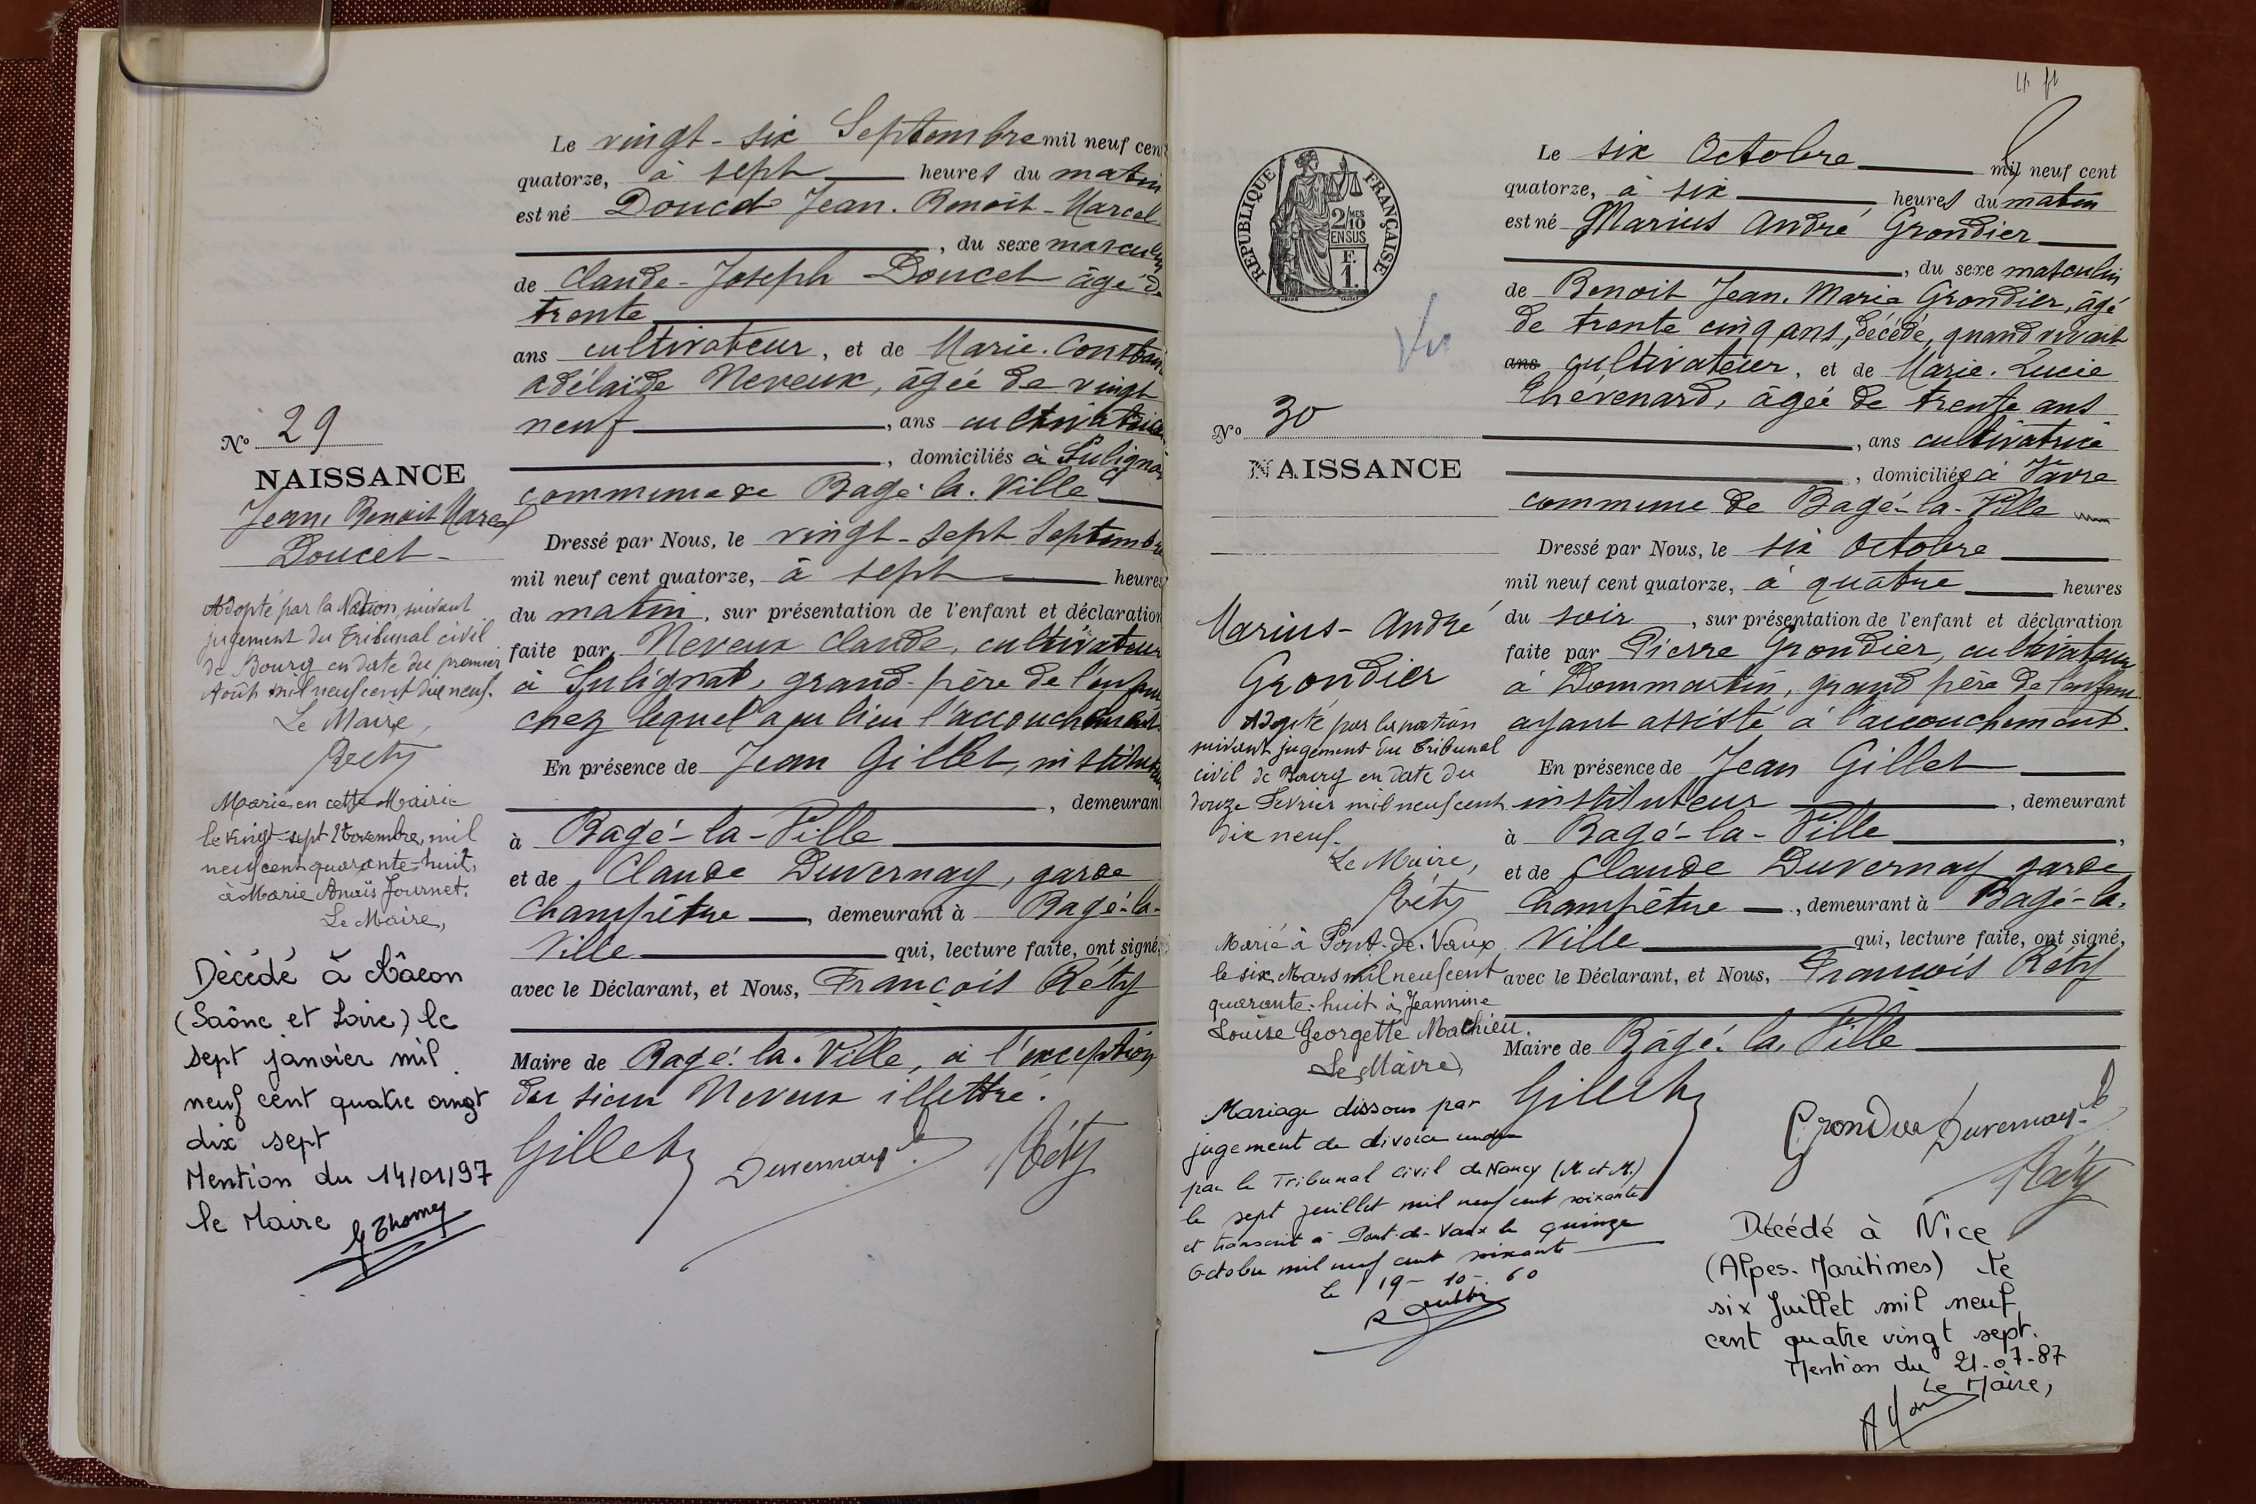 Le vingt-six Septembre mil neuf cent
quatorze, à sept heures du matin
est né Doucet Jean-Benoit-Marcel
, du sexe masculin
de Claude-Joseph Doucet âgé de
trente
ans cultivateur, et de Marie-
adélaïde Neveux, âgée de vingt
neuf , ans cultivatrice
, domiciliés à Sulignat
commune de Bagé-la-Ville
Nº 29
NAISSANCE
Jean, Benoit Marcel
Doucet
Dressé par Nous, le vingt-sept Septembre
mil neuf cent quatorze, à sept heures
du matin, sur présentation de l'enfant et déclaration
faite par Neveux Claude, cultivateur
à Sulignat, grand-père de l'enfant
chez lequel a eu lieu l'accouchement
En présence de Jean Gillet, instituteur
, demeurant
à Bagé-la-Ville
et de Claude Duvernay, garde
Champêtre , demeurant à Bagé-la-
Ville qui, lecture faite, ont signé,
avec le Déclarant, et Nous, François Réty
Maire de Bagé-la-Ville, à l'exception
du sieur Neveux illettré.
Gillet Duvernay Réty
Adopté par la Nation, suivant
jugement du Tribunal civil
de Bourg en date du premier
Août mil neuf cent dix neuf.
Le Maire,
Réty
Marié en cette Mairie
le vingt-sept Novembre, mil
neuf cent quarante-huit,
à Marie Anaïs Journet.
Le Maire,
Décédé à Mâcon
(Saône et Loire) le
sept janvier mil
neuf cent quatre vingt
dix sept
Mention du 14/01/97
le Maire
G Thomey
RÉPUBLIQUE FRANÇAISE
2/10MES
EN SUS
F.
1.
Le six Octobre mil neuf cent
quatorze, à six heures du matin
est né Marius André Grondier
, du sexe masculin
de Benoit Jean-Marie Grondier, âgé
de trente cinq ans, décédé, quand vivait
ans cultivateur, et de Marie-Lucie
Chévenard, âgée de trente ans
, ans cultivatrice
, domiciliée à Vavre
commune de Bagé-la-Ville
Nº 30
NAISSANCE
Marius-André
Grondier
Dressé par Nous, le six Octobre
mil neuf cent quatorze, à quatre heures
du soir , sur présentation de l'enfant et déclaration
faite par Pierre Grondier, cultivateur
à Dommartin, grand père de l'enfant
ayant assisté à l'accouchement.
En présence de Jean Gillet
instituteur , demeurant
à Bagé-la-Ville ,
et de Claude Duvernay garde
Champêtre , demeurant à Bagé-la-
Ville qui, lecture faite, ont signé,
avec le Déclarant, et Nous, François Réty
Maire de Bâgé-la-Ville
Gillet Grondier Duvernay
Réty
Adopté par la nation
suivant jugement du Tribunal
civil de Bourg en date du
douze Février mil neuf cent
dix neuf.
Le Maire,
Réty
Marié à Pont-de-Vaux
le six Mars mil neuf cent
quarante-huit à Jeannine
Louise Georgette Mathieu.
Le Maire,
Mariage dissous par
jugement de divorce rendu
par le Tribunal Civil de Nancy (M. et M.)
le sept juillet mil neuf cent soixante
et transcrit à Pont-de-Vaux le quinze
Octobre mil neuf cent soixante
Le 19-10-60
Décédé à Nice
(Alpes-Maritimes) le
six Juillet mil neuf
cent quatre vingt sept.
Mention du 21-07-87
Le Maire,